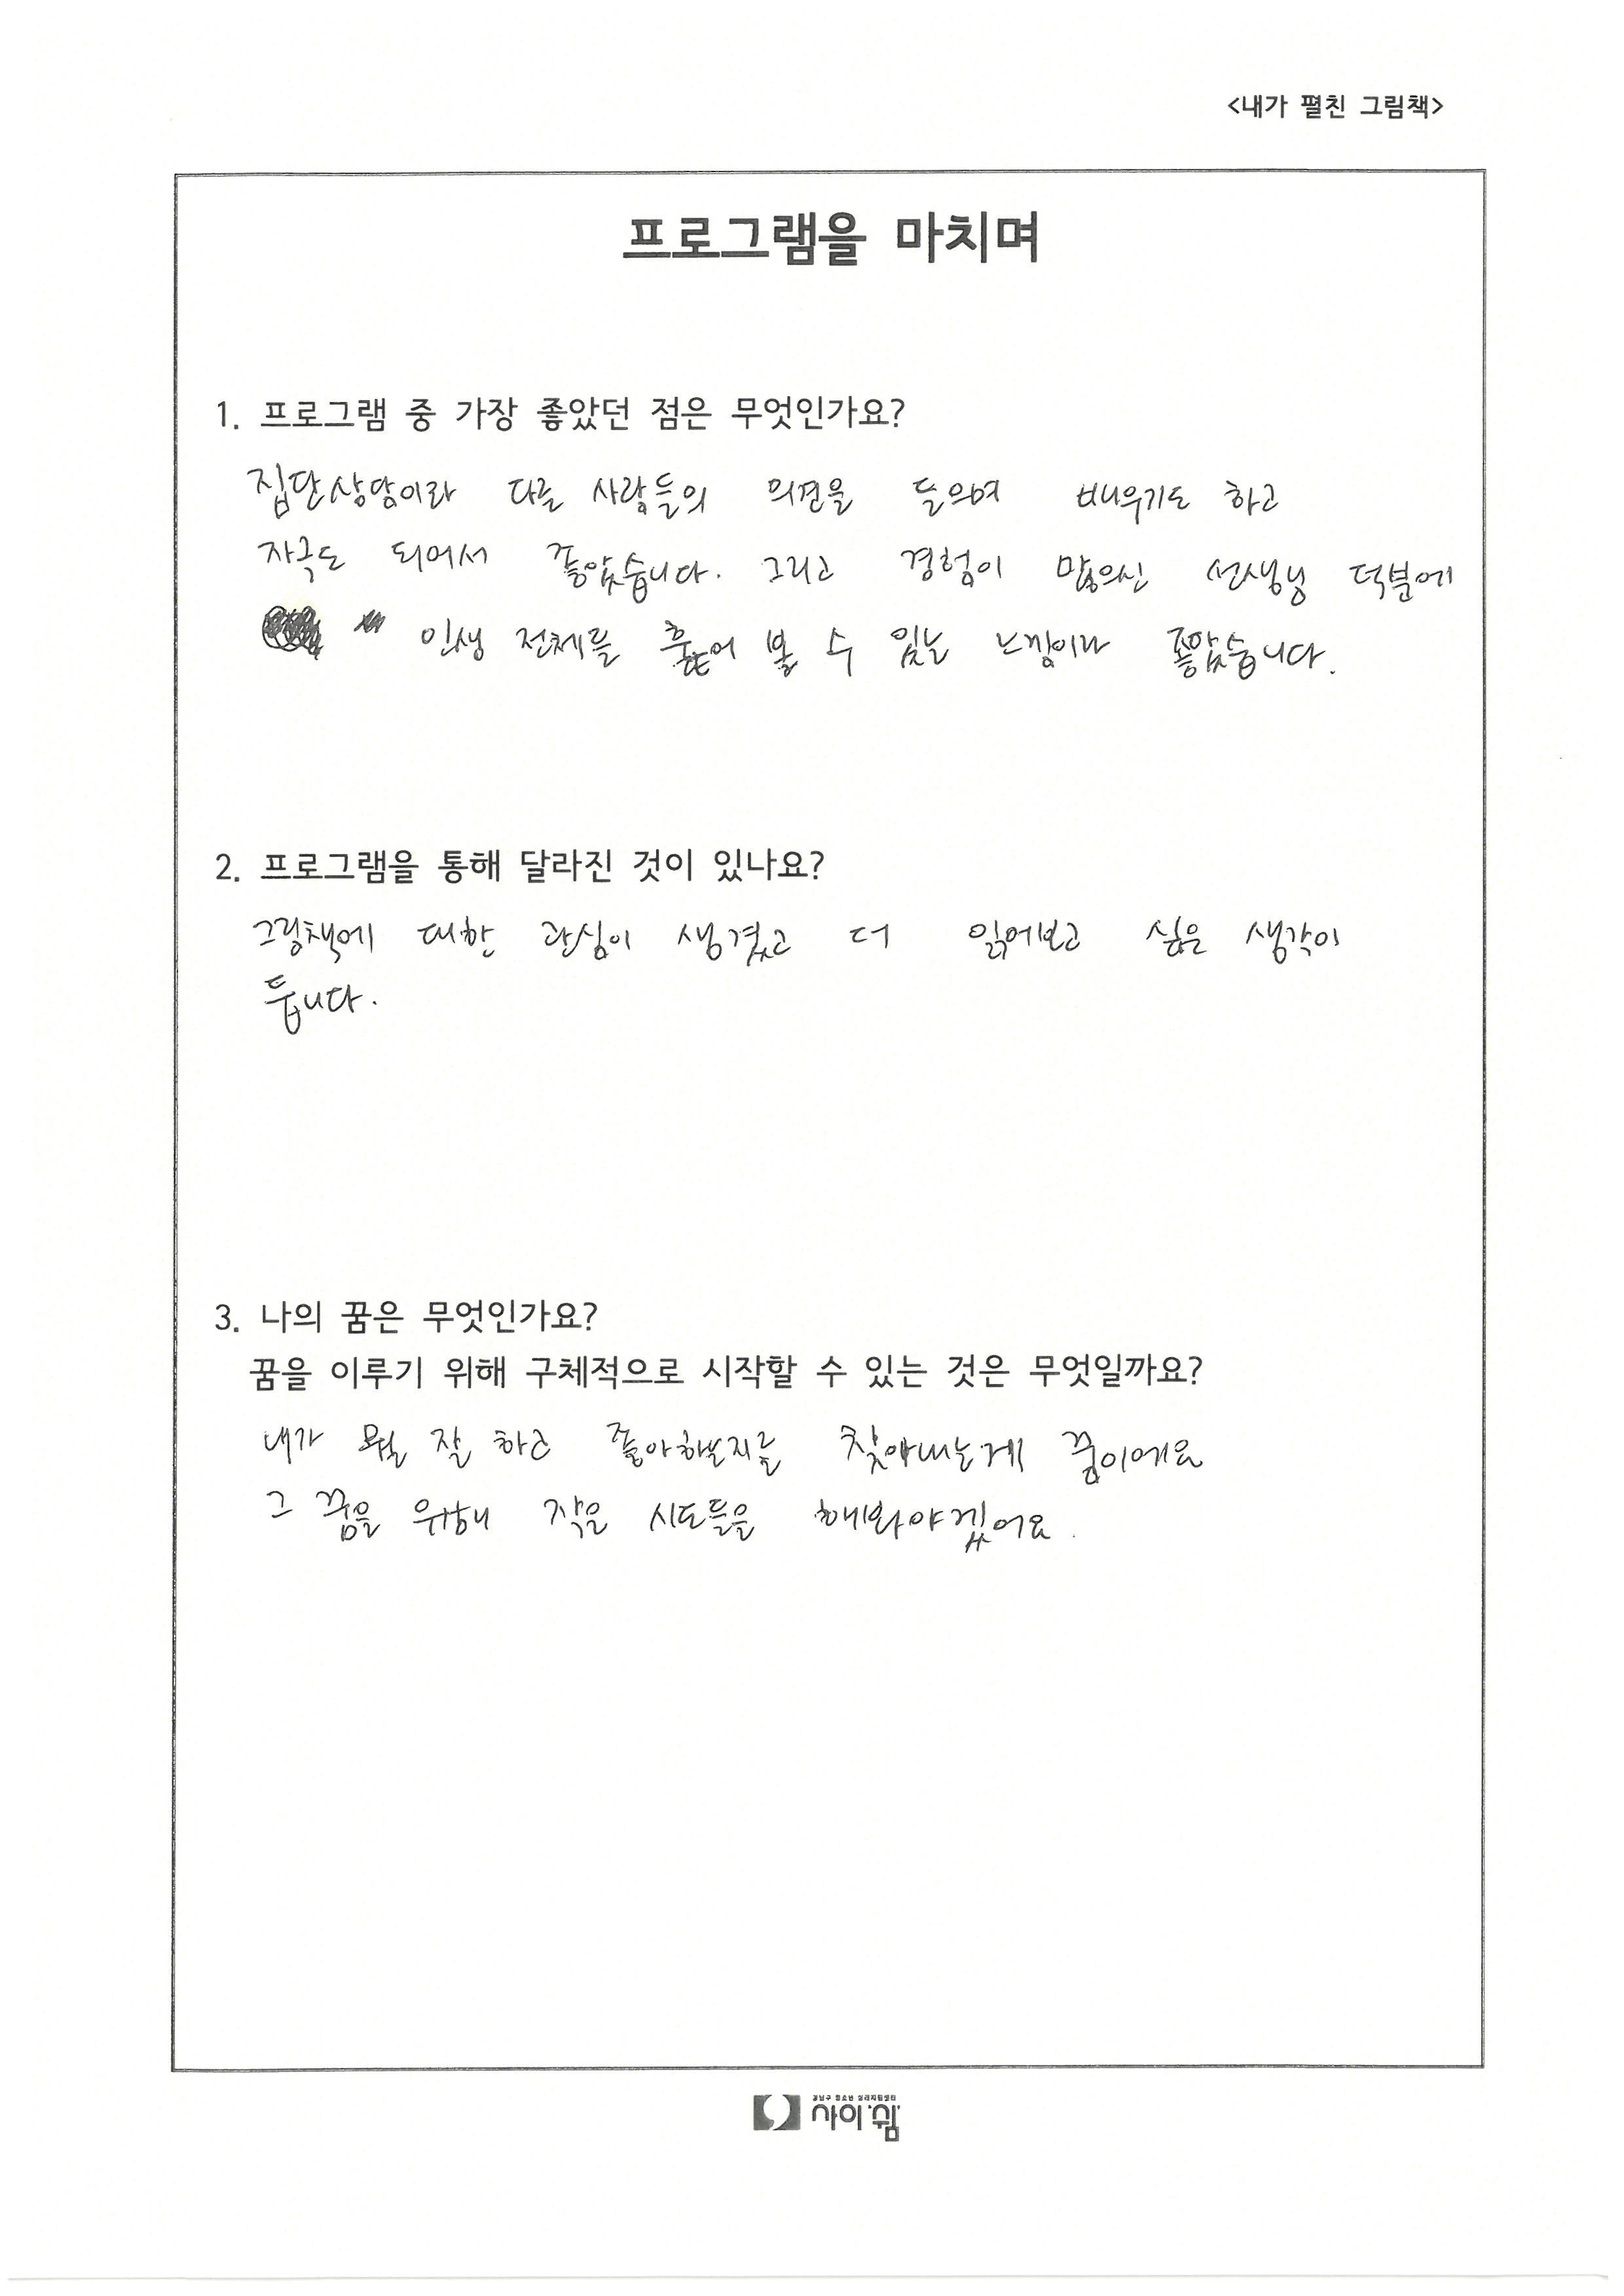 <내가 펼친 그림책>
프로그램을 마치며
1. 프로그램 중 가장 좋았던 점은 무엇인가요?
집단상담이라 다른 사람들의 의견을 들으며 배우기도 하고
자극도 되어서 좋았습니다. 그리고 경험이 많으신 선생님 덕분에
인생 전체를 훑어 볼 수 있는 느낌이라 좋았습니다.
2. 프로그램을 통해 달라진 것이 있나요?
그림책에 대한 관심이 생겼고 더 읽어보고 싶은 생각이
듭니다.
3. 나의 꿈은 무엇인가요?
꿈을 이루기 위해 구체적으로 시작할 수 있는 것은 무엇일까요?
내가 뭘 잘 하고 좋아하는지를 찾아내는게 꿈이에요
그 꿈을 위해 작은 시도들을 해봐야겠어요.
강남구 청소년 심리지원센터
사이쉼